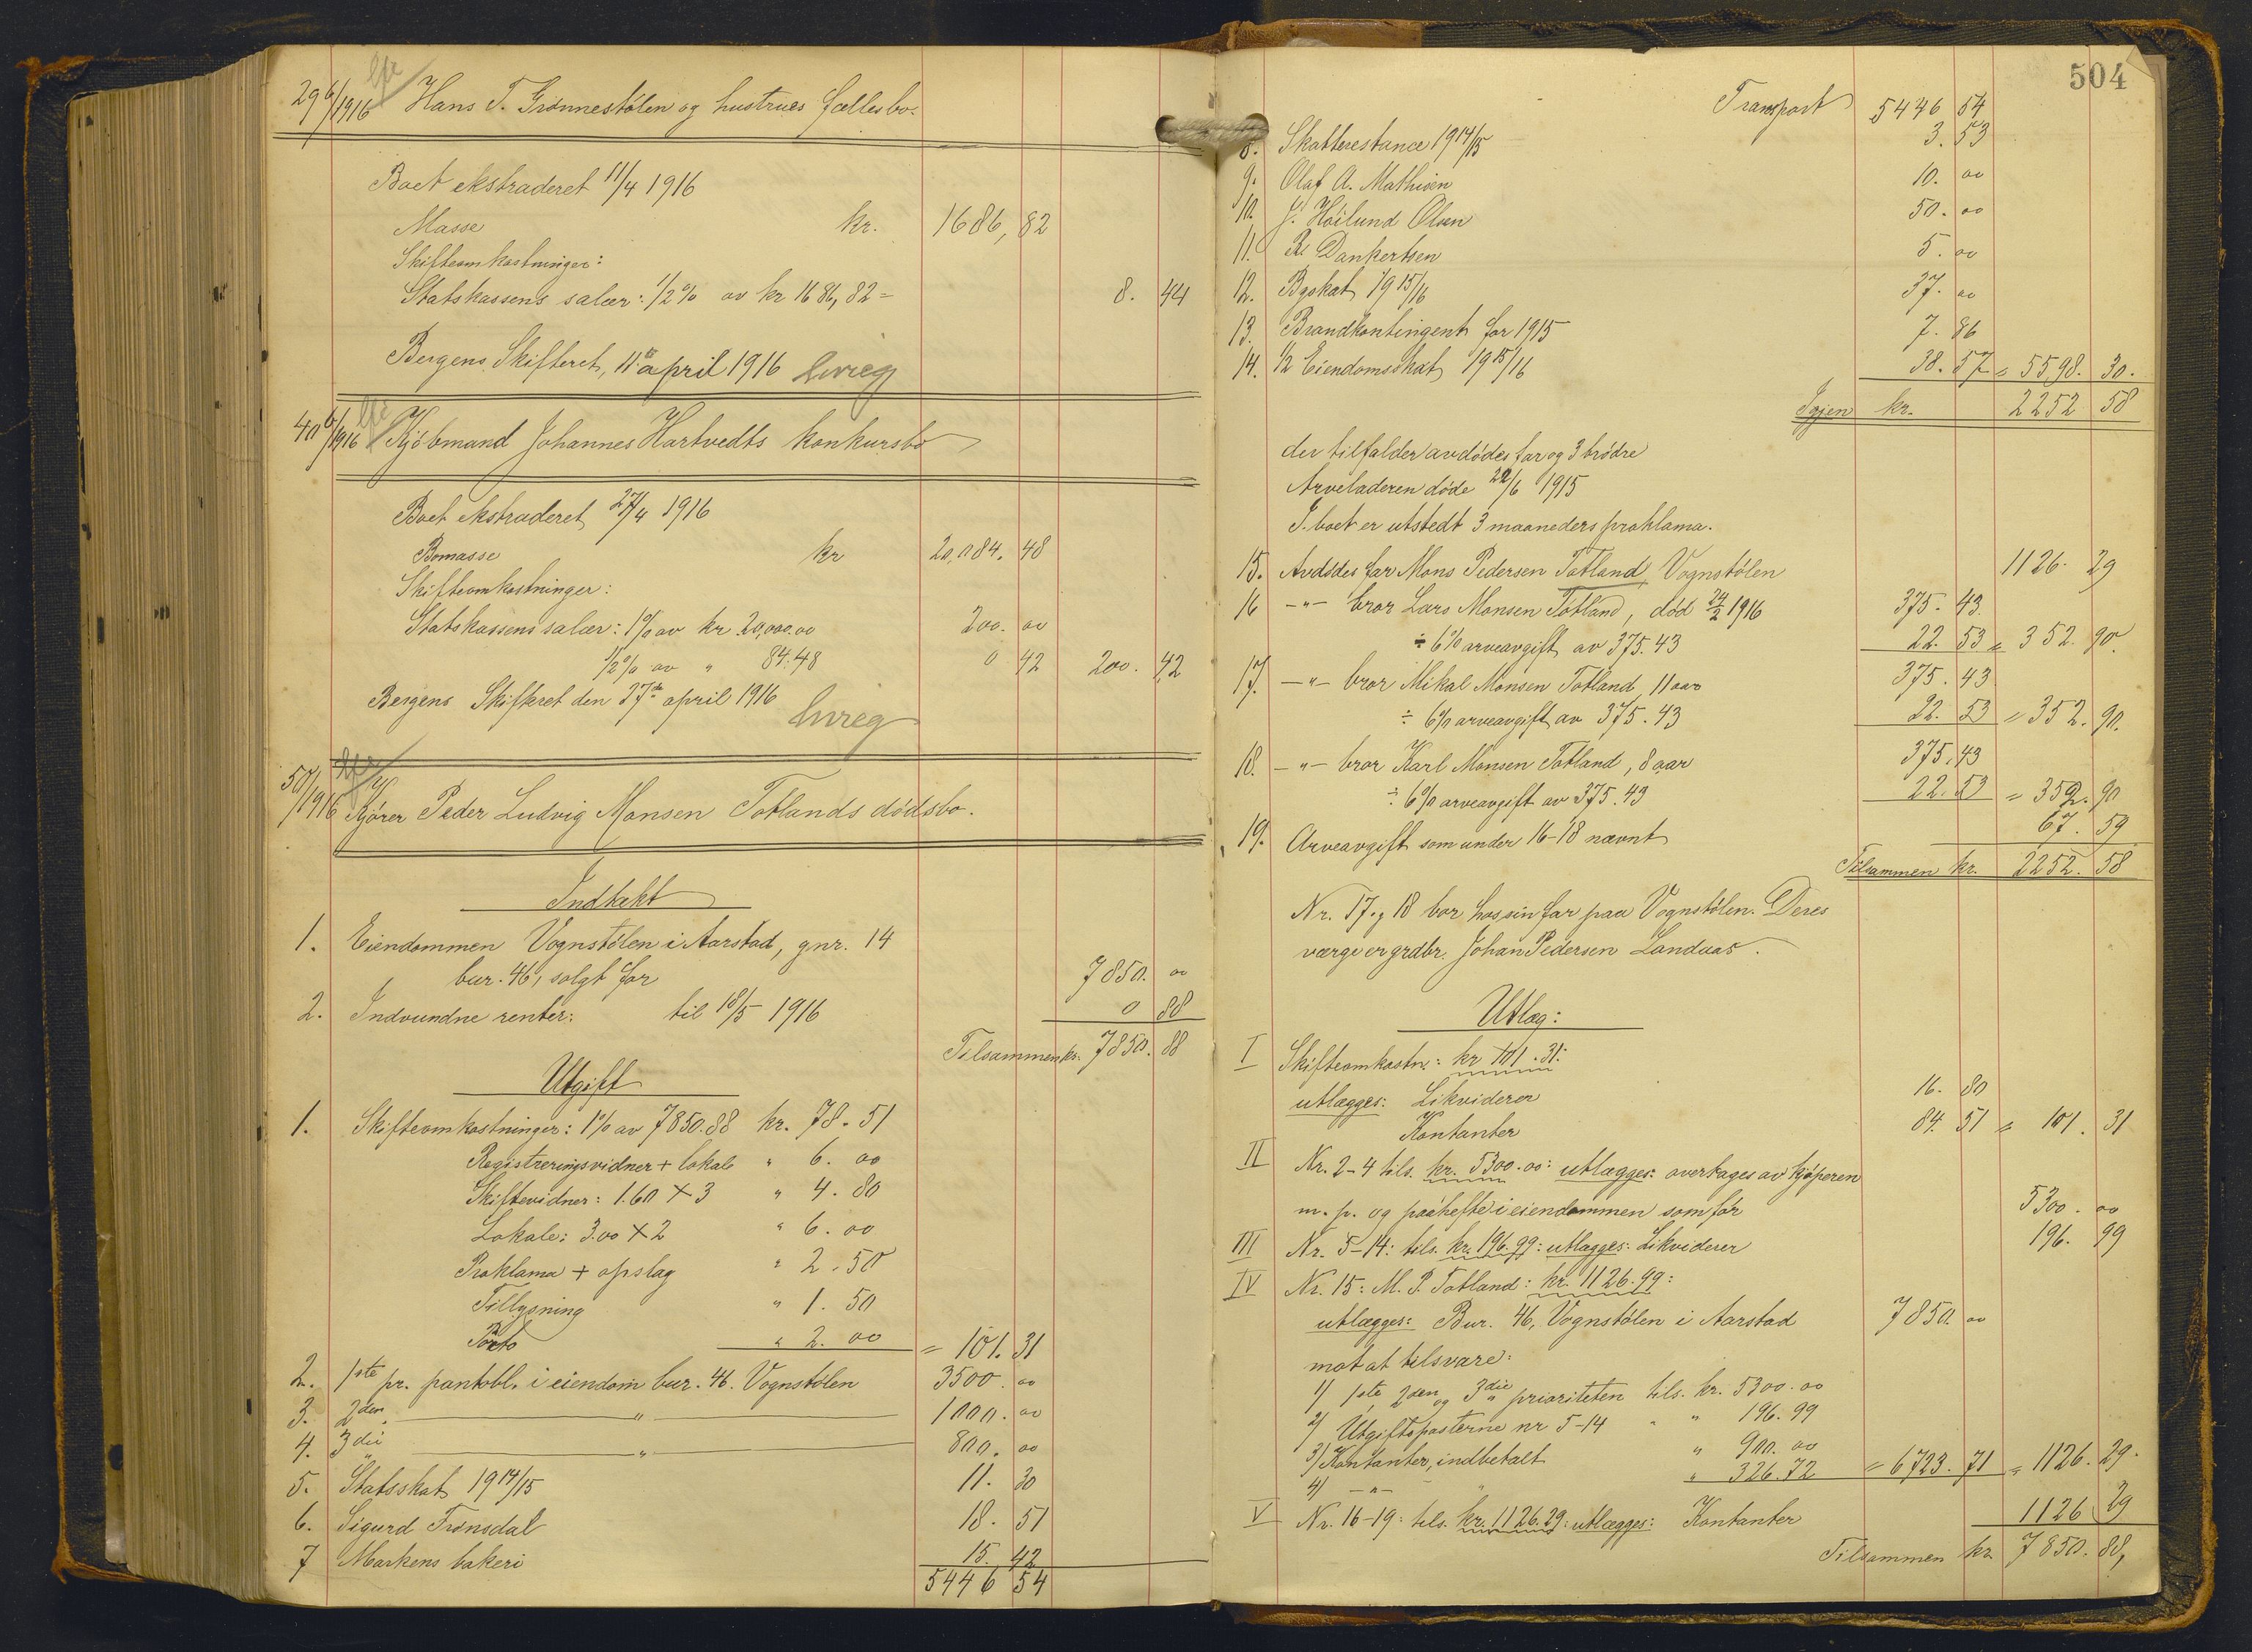 29 6/1916 Hans T. Grönnestölen og hustrues fællesbo.
Boet ekstraderet 11/4 1916
Masse kr. 1686,82
Skifteomkostninger:
Statskassens salær: 1/2 % av kr 1686,82 = 8. 44
Bergens Skifteret, 11te april 1916
40 6/1916 Kjöbmand Johannes Hartvedts konkursbo
Boet ekstraderet 27/4 1916
Bomasse kr 20,084. 48
Skifteomkostninger:
Statskassens salær: 1 % av kr 20,000.00 200. 00
1/2 % av " 84.48 0 42 200. 42
Bergens Skifteret den 27de april 1916
50/1916 Kjörer Peder Ludvig Monsen Totlands dödsbo.
Indtekt
1. Eiendommen Vognstölen i Aarstad, gnr. 14
bur. 46, solgt for 7850. 00
2. Indvundne renter: til 18/5 1916 0 88
Tilsammen kr. 7850. 88
Utgift
1. Skifteomkostninger: 1 % av 7850.88 kr. 78. 51
Registreringsvidner + lokale " 6. 00
Skiftevidner: 1.60 X 3 " 4. 80
Lokale: 3.00 X 2 " 6. 00
Proklama + opslag " 2. 50
Tillysning " 1. 50
Porto " 2. 00 = 101. 31
2. 1ste pr. pantobl. i eiendom bur. 46. Vognstölen 3500. 00
3. 2den — " — 1000. 00
4. 3die — " — 800. 00
5. Statsskat 1914/15 11. 30
6. Sigurd Frönsdal 18. 51
7 Markens bakeri 15. 42
5446 54
504
Transport 5446 54
8. Skatterestance 1914/15 3. 53
9. Olaf A. Mathisen 10. 00
10. J. Höilund Olsen 50. 00
11. R. Dankertsen 5. 00
12. Byskat 1915/16 37. 00
13. Brandkontingent for 1915 7. 86
14. 1/2 Eiendomsskat 1915/16 38. 57 = 5598. 30.
Igjen kr. 2252 58
der tilfalder avdödes far og 3 brödre
Arveladeren döde 22/6 1915
I boet er utstedt 3 maaneders proklama.
15. Avdödes far Mons Pedersen Totland, Vognstölen 1126. 29
16 -"- bror Lars Monsen Totland, död 24/2 1916 375. 43
÷ 6 % arveavgift av 375.43 22. 53 = 352. 90.
17. -"- bror Mikal Monsen Totland, 11 aar 375. 43
÷ 6 % arveavgift av 375.43 22. 53 = 352. 90.
18. -"- bror Karl Monsen Totland, 8 aar 375. 43
÷ 6 % arveavgift av 375.43 22. 53 = 352. 90
19. Arveavgift som under 16-18 nævnt 67. 59
Tilsammen kr. 2252. 58
Nr. 17 og 18 bor hos sin far paa Vognstölen. Deres
værge er grdbr. Johan Pedersen Landaas.
Utlæg:
I Skifteomkostn.: kr 101.31:
utlægges: Likviderer 16. 80
Kontanter 84. 51 = 101. 31
II Nr. 2-4 tils. kr. 5300.00: utlægges: overtages av kjöperen
m. p. og paahefte i eiendommen som för 5300. 00
III Nr. 5-14: tils. kr. 196.99: utlægges: Likviderer 196. 99
IV Nr. 15: M. P. Totland: kr. 1126.99:
utlægges: Bur. 46, Vognstölen i Aarstad 7850. 00
mot at tilsvare:
1/ 1ste, 2den og 3die prioriteten tils. kr. 5300.00
2/ Utgiftsposterne nr 5-14 " " 196.99
3/ Kontanter, indbetalt " 900. 00
4/ -"- " " 326.72 = 6723. 71 = 1126. 29.
V Nr. 16-19: tils. kr. 1126.29: utlægges: Kontanter 1126 29
Tilsammen kr. 7850. 88,